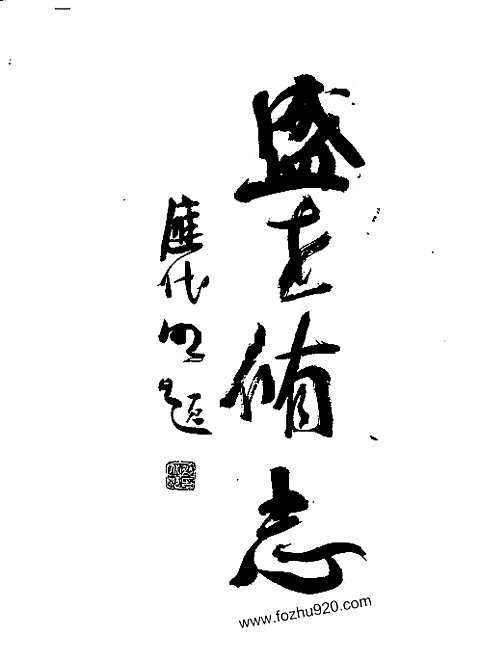 盛世脩志
應代明題
www.fozhu920.com